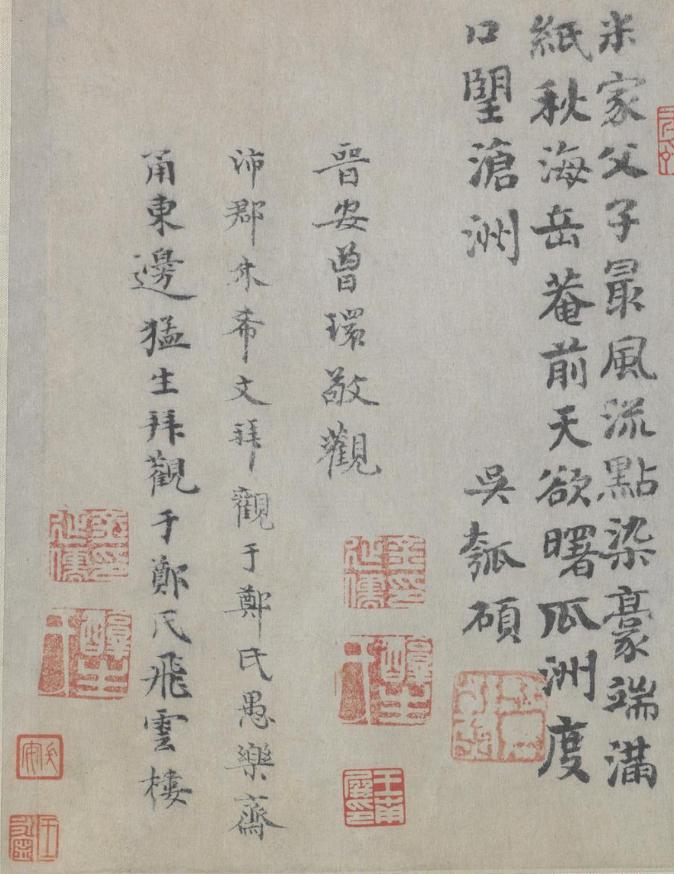 米家父子最風流點染豪端滿
紙秋海岳菴前天欲曙瓜洲度
口望滄洲
吳瓠碩
晉安曾環敬觀
沛郡朱希文拜觀于鄭氏愚樂齋
甬東邊猛生拜觀于鄭氏飛雲樓